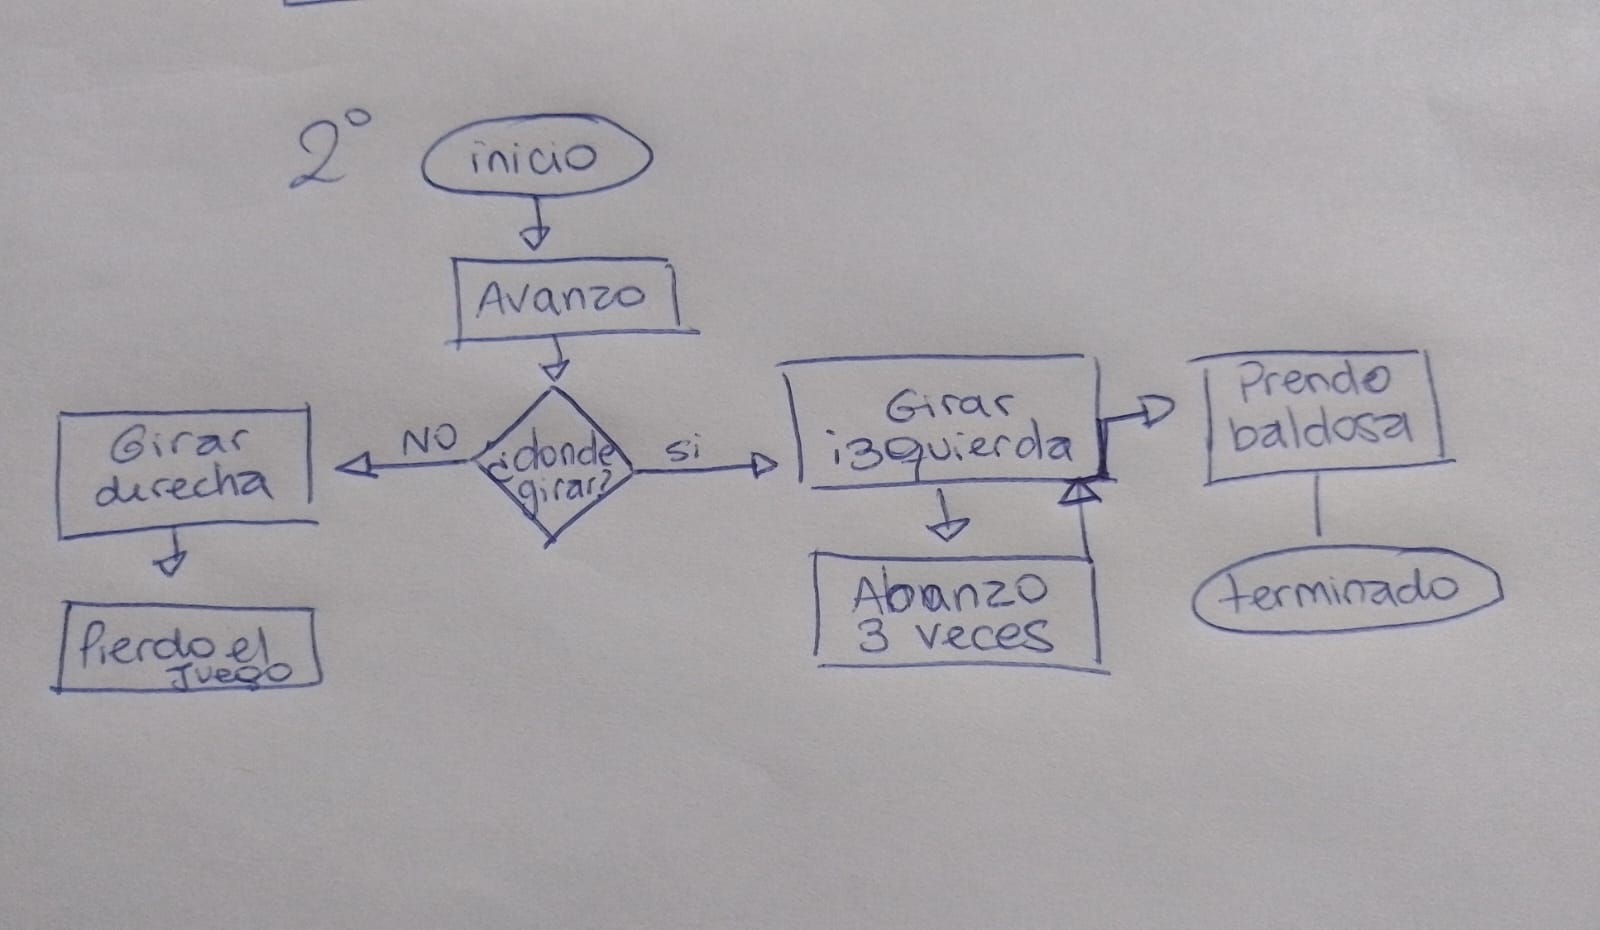 2°
inicio
Avanzo
¿donde
girar?
NO
si
Girar
derecha
Pierdo el
Juego
Girar
izquierda
Abanzo
3 veces
Prendo
baldosa
terminado